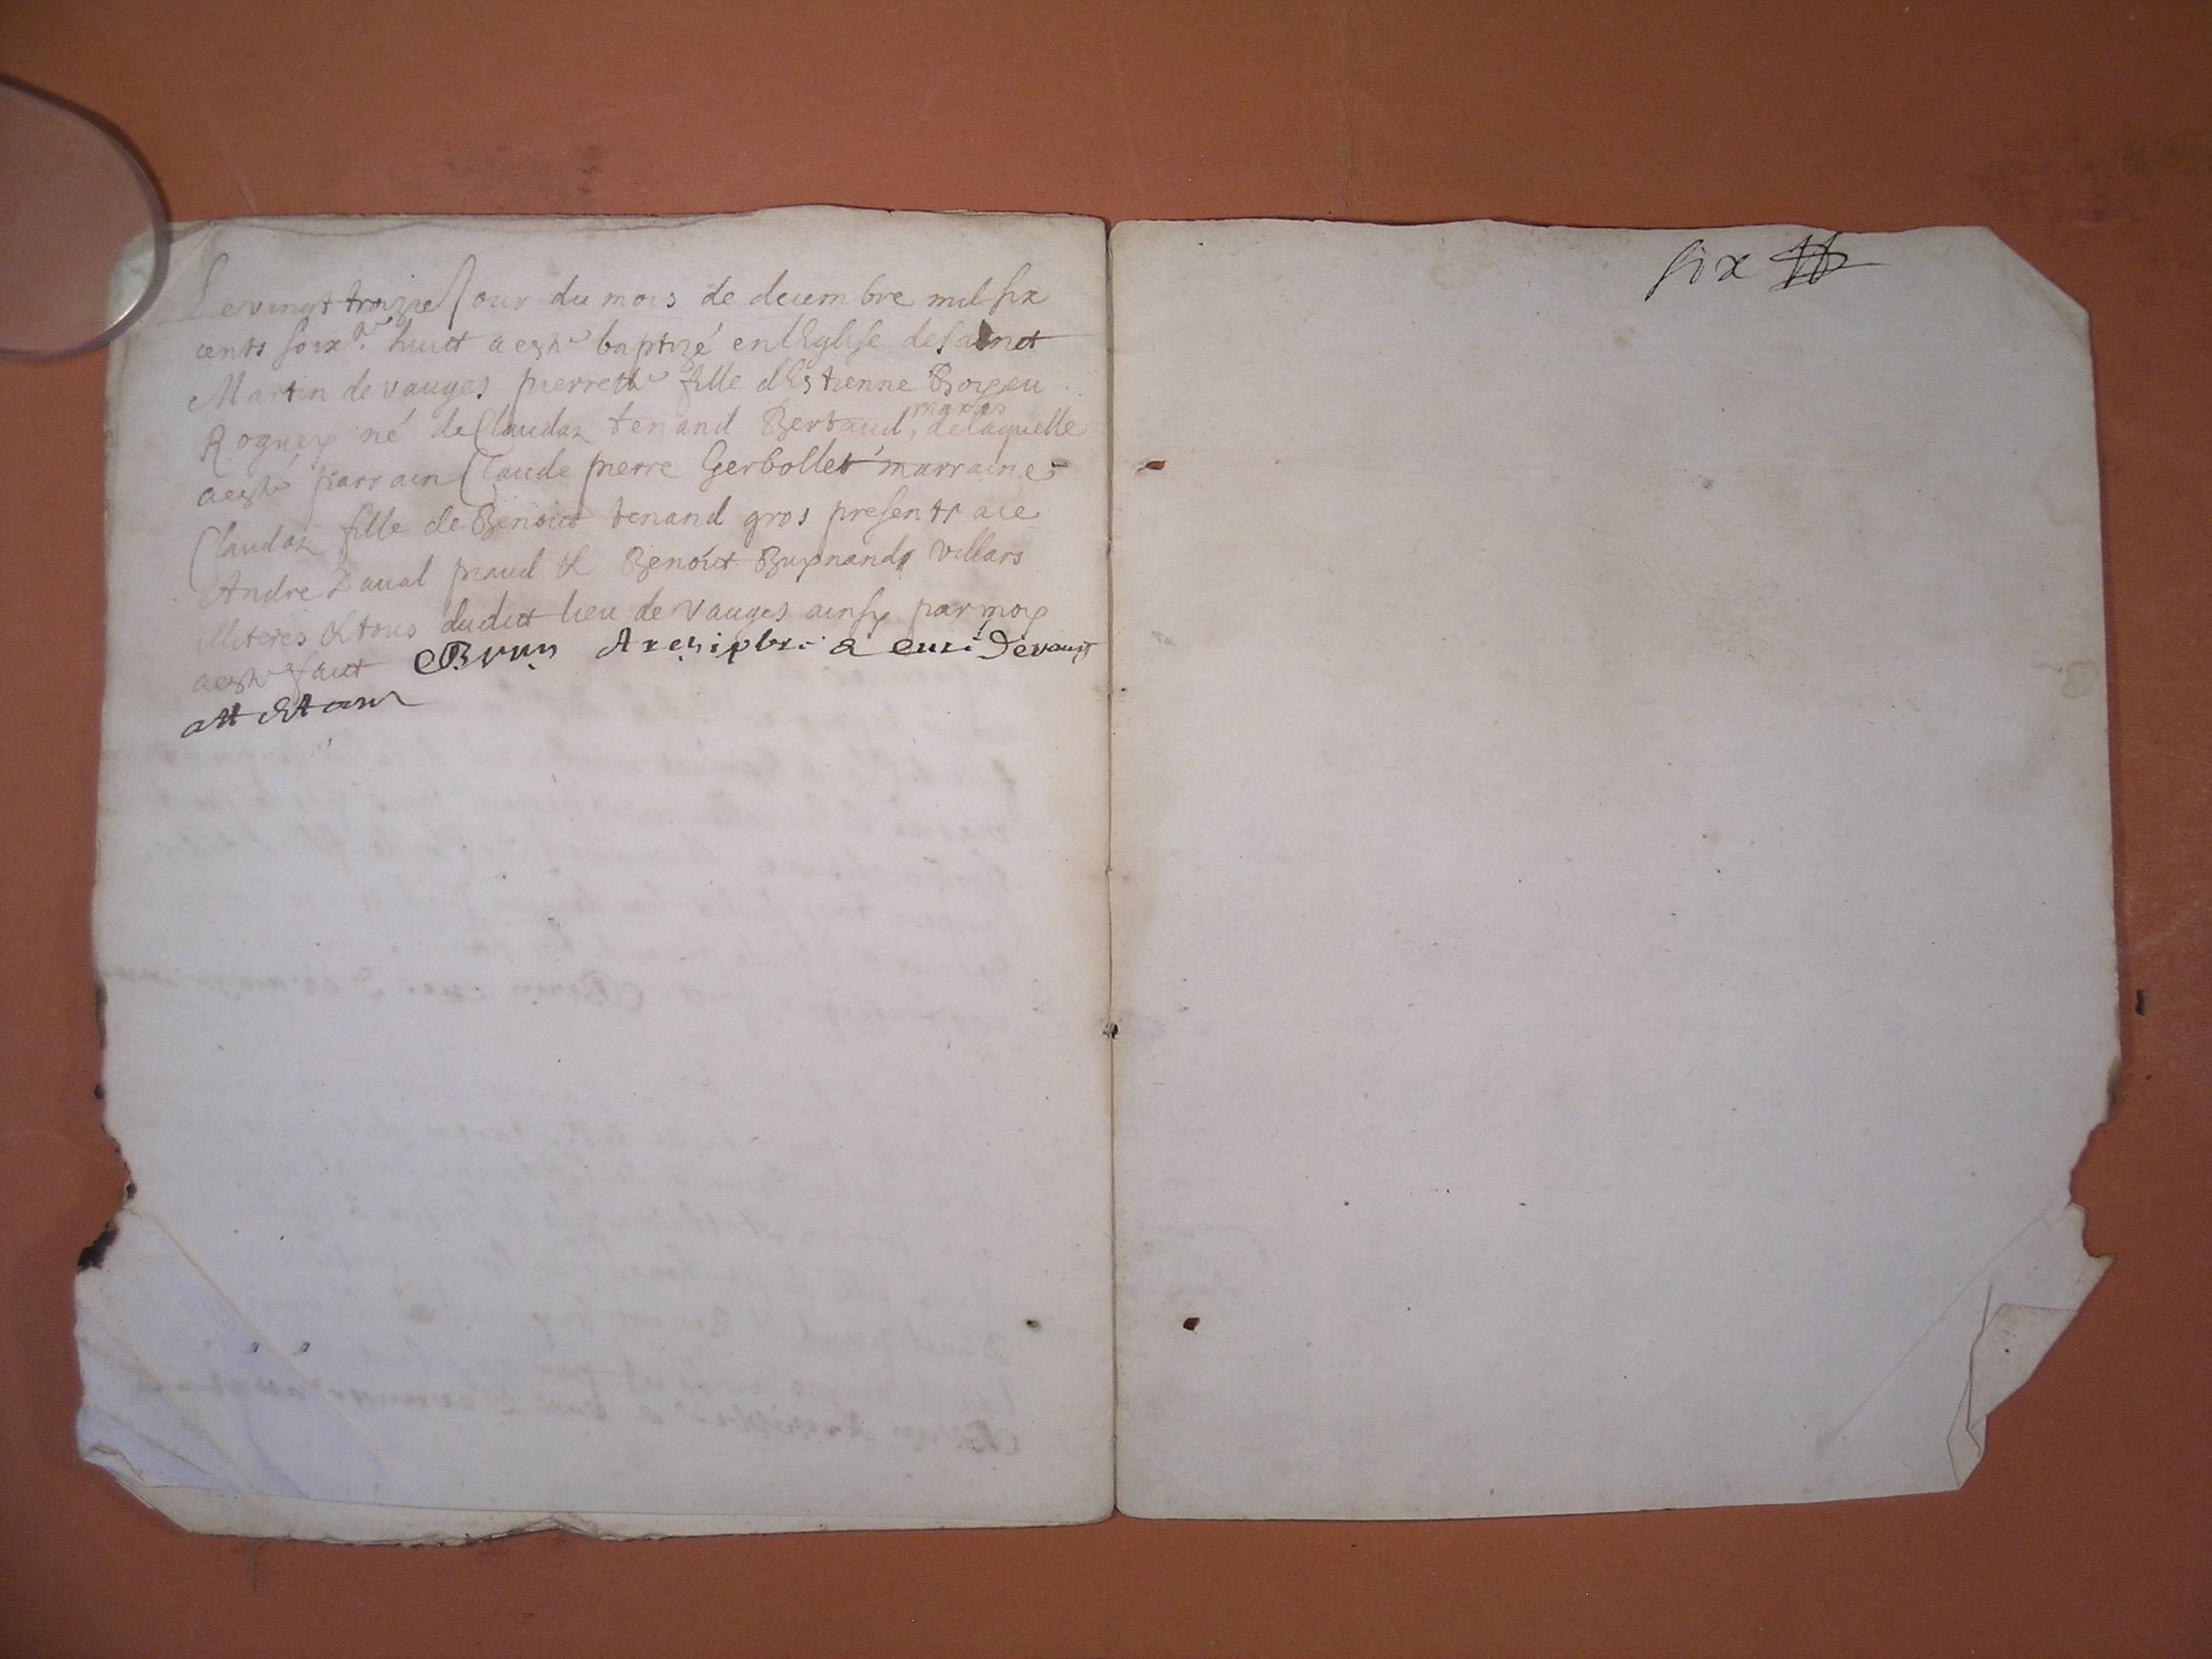 Le vingt troizie Jour du mois de decembre mil six
cents soix.te huict a esté baptizé en l'Eglise de sainct
Martin de vauges pierrette fille d'Estienne
né de Claudaz tenand Bertaud, delaquelle
a esté parrain Claude pierre Gerbollet marraine
Claudaz fille de Benoict tenand gros presents a ce
Andre Laual praud & Benoict villars
illiteres & tous dudict lieu de vauges ainsy par moy
a esté faict Brun Archipbr: & curé De vaug
attestant
six